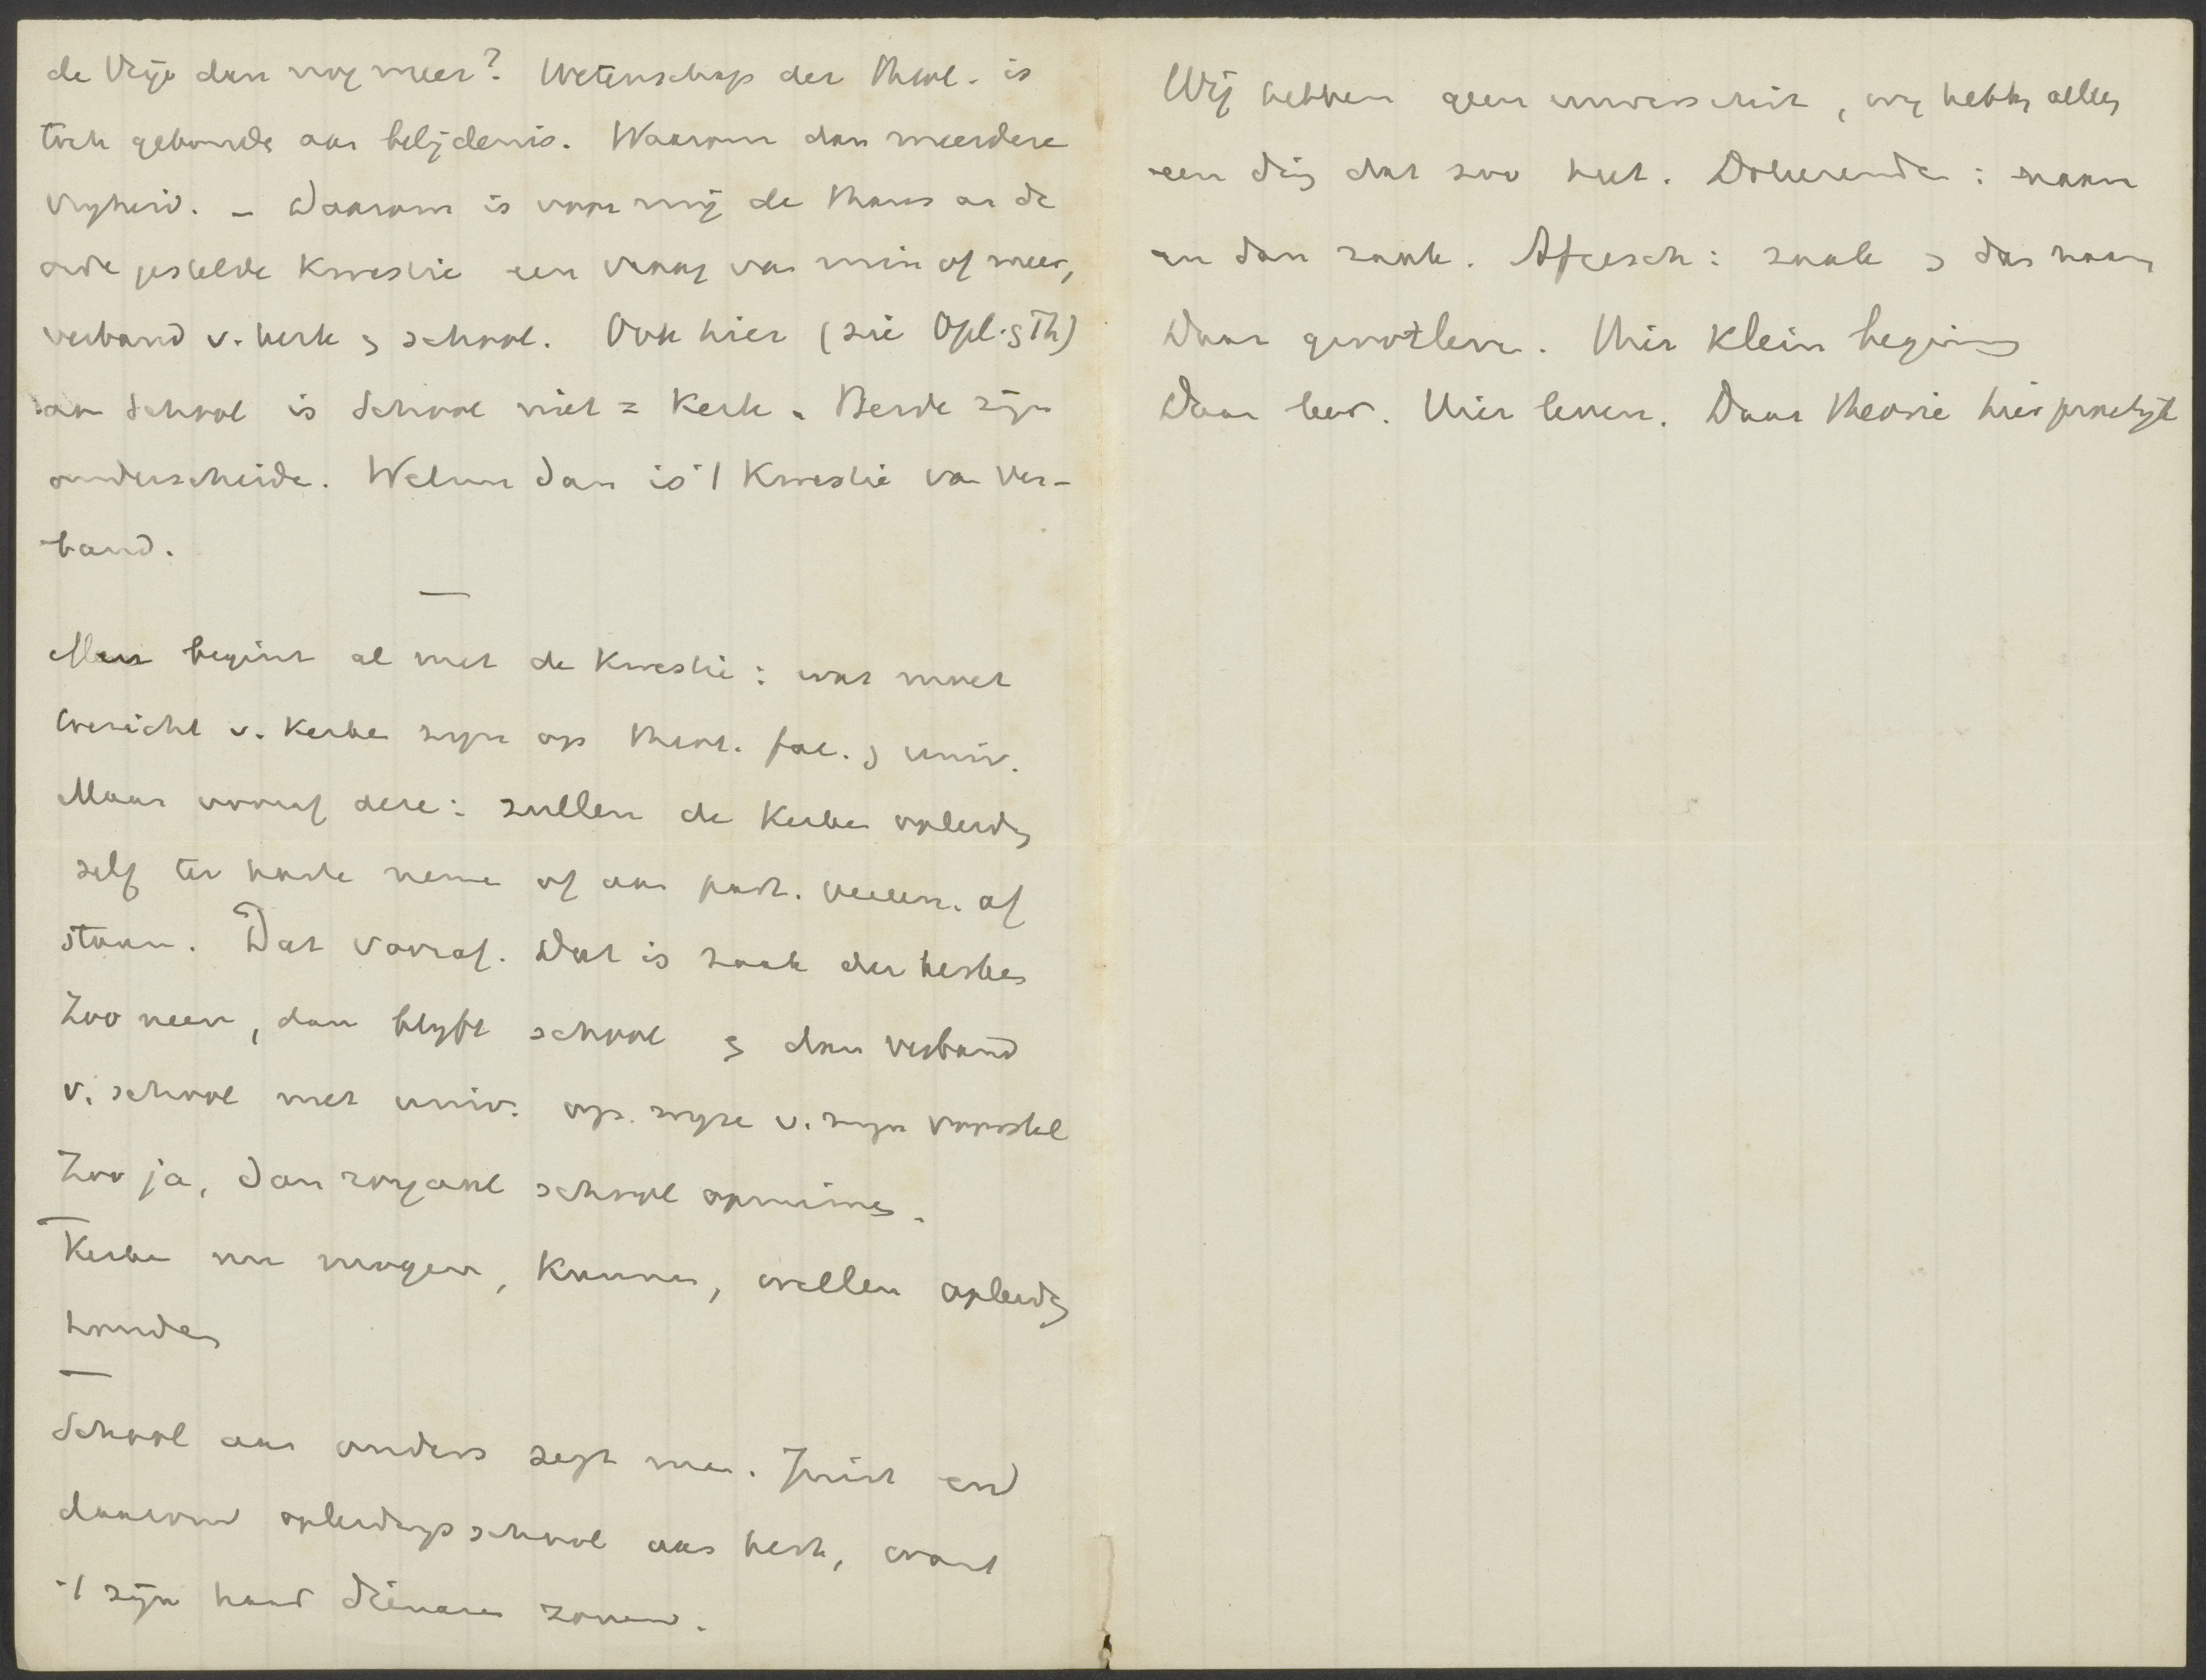 de Vrije dan nog meer? Wetenschap der Theol. is
toch gebonde aan belijdenis. Waarom dan meerdere
vrijheid. – Daarom is voor mij de thans aan de
orde gestelde Kwestie een vraag van min of meer,
verband v. kerk en school. Ook hier (zie Opl. en Th)
aan School is School niet = Kerk. Beide zijn
onderscheide. Welnu dan is 't Kwestie van ver-
band.
—
Men begint al met de Kwestie: wat moet
toezicht v. Kerke zijn op theol. fac. en univ.
Maar vooraf deze: zullen de Kerke opleiding
zelf ter hande neme of aan part. vereen. af
staan. Dat vooraf. Dat is zaak der kerken
Zoo neen, dan blijft school en dan verband
v. school met univ. op wijze v. mijn voorstel
Zoo ja, dan zorgend school opruimen.
—
Kerke nu mogen, Kunnen, willen opleiding
houden
—
School aan anders zegt men. Juist en
daarom opleidingsschool aan kerk, want
't zijn haar dienaren zonen.
Wij hebben geen universiteit, wij hebben alleen
een ding dat zoo heet. Doleerende: naam
en dan zaak. Afgesch: zaak en dan naam
Daar groot leven. Hier Klein begin
Daar leer. Hier leven. Daar theorie hier practijk